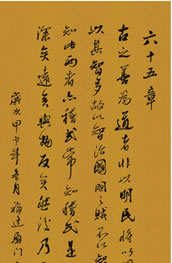 六十五章
古之善為道者非以明民將以
以其智多故以智治國國之賊不以
知此兩者亦稽式常知稽式是
深矣遠矣與物反矣然後乃
歲次甲午年冬月福建廈門